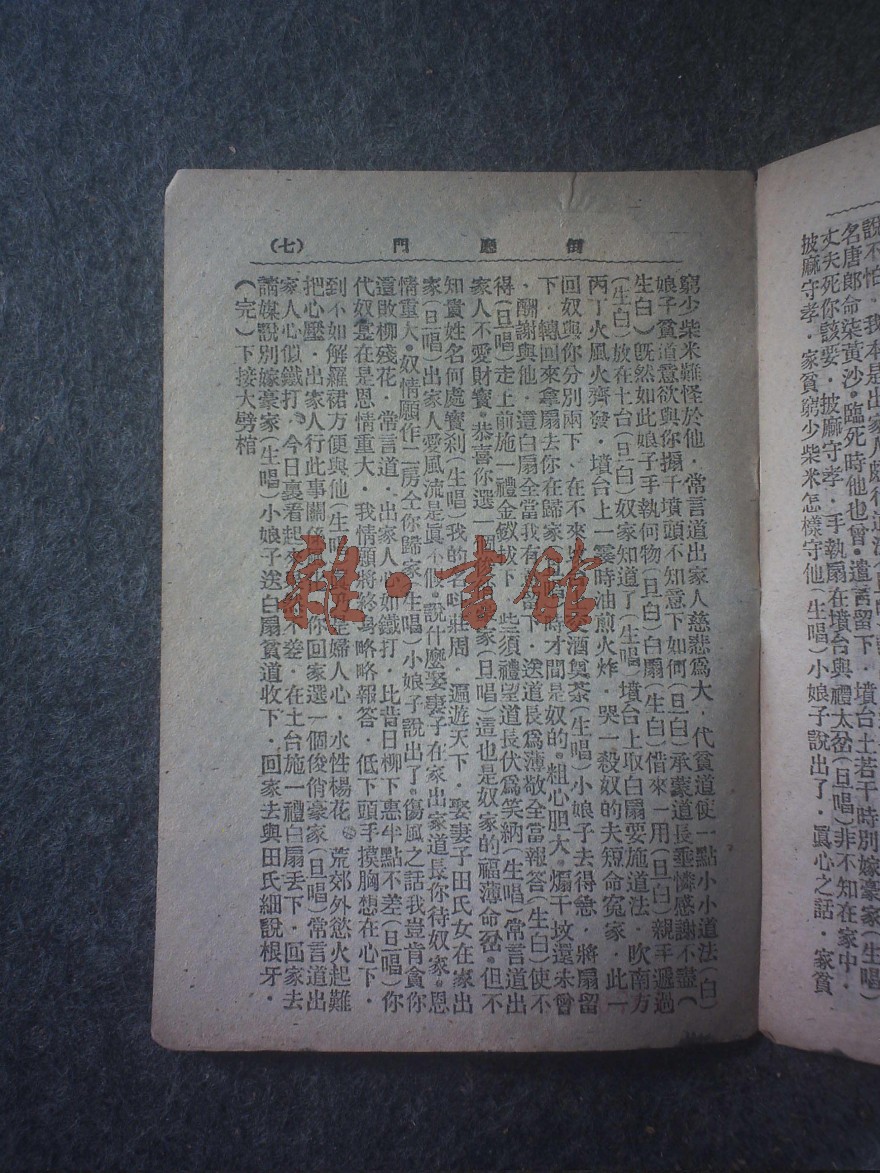 說不怕·我本是出家人頗得道法(旦白)
名唐郎命染黃沙·臨死時他也曾·遺言留下·墳台土若干時別嫁豪家(生唱)
丈夫死你該要·披麻守孝·手執扇在墳台與禮太岔(旦唱)非不知在家中·
披麻守孝·家貧窮少柴米怎樣守他(生唱)小娘子說出了·眞心之話·家貧
(七) 門 廳 倒
窮少柴米難怪於他·常言道出家人慈悲爲大·代貧道便一點小小道法(白)
娘子貧道意欲與你搧干墳頭不知意下如何(旦白)承蒙道長垂憐感謝不盡(
生白)旣然如此娘子手執何物(旦白)白扇(生白)借來一用(旦白)親手遞過
(生白)放在土台(旦白)奴家知道了(生唱)墳台上取白扇要施道法·吹南方
丙丁火風火齊發·墳台上一霎時油煎火炸·哭一殺奴的夫短命寃家·此一
回奴與你分別兩下·在不來 酒奠茶(生唱)小娘子去得急·將扇留
下·轉回來拿扇去你在歸家 才間是奴的·粗心胆大·煽干坟還未曾
·酬謝與他·這白扇全當我有 當下·送道長爲薄敬全當報答(生白)使不
得(旦唱)走上前施一禮金釵拔下·些須禮望道長伏爲笑納(生唱)常言道出
家人不愛財寶·恭喜你選一個 家(旦唱)這也是奴家的福薄命岔·但不
知貴姓名何處寳刹(生唱)我的名叫莊周·遍遊天下·娶妻子田氏女在家出
家(旦唱)出家人愛風流是眞不假·說什麼娶妻子在家出家道長你待奴家·恩
情重大·奴情願作二房全你歸家(生唱)小娘子說出了·傷風之話我豈肯貪你
這敗柳殘花·常言道·出家人心如鐵打·比昔日柳下惠半點不差(旦唱)你
代奴童在是恩情重大·我情願將終身略略報答·低下頭手摸胸想在心下·
到不如解羅裙方便與他(生唱) 是婦人心·水性楊花·荒郊外慾火起難
把心壓·出家人行此事關係 你回家選一個俊俏豪家(旦唱)常言道出
家人心似鐵打·今日裏看起來 不差·在土台施一禮白扇丢下·回家去
請媒說別嫁豪家(生唱)小娘子送白扇貧道收下·回家去與田氏細說根牙·
(完)下接大劈棺
雜·書館